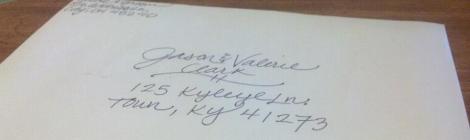 Jason & Valerie
Clark
125 Kyleye Ln.
Town, KY 41273